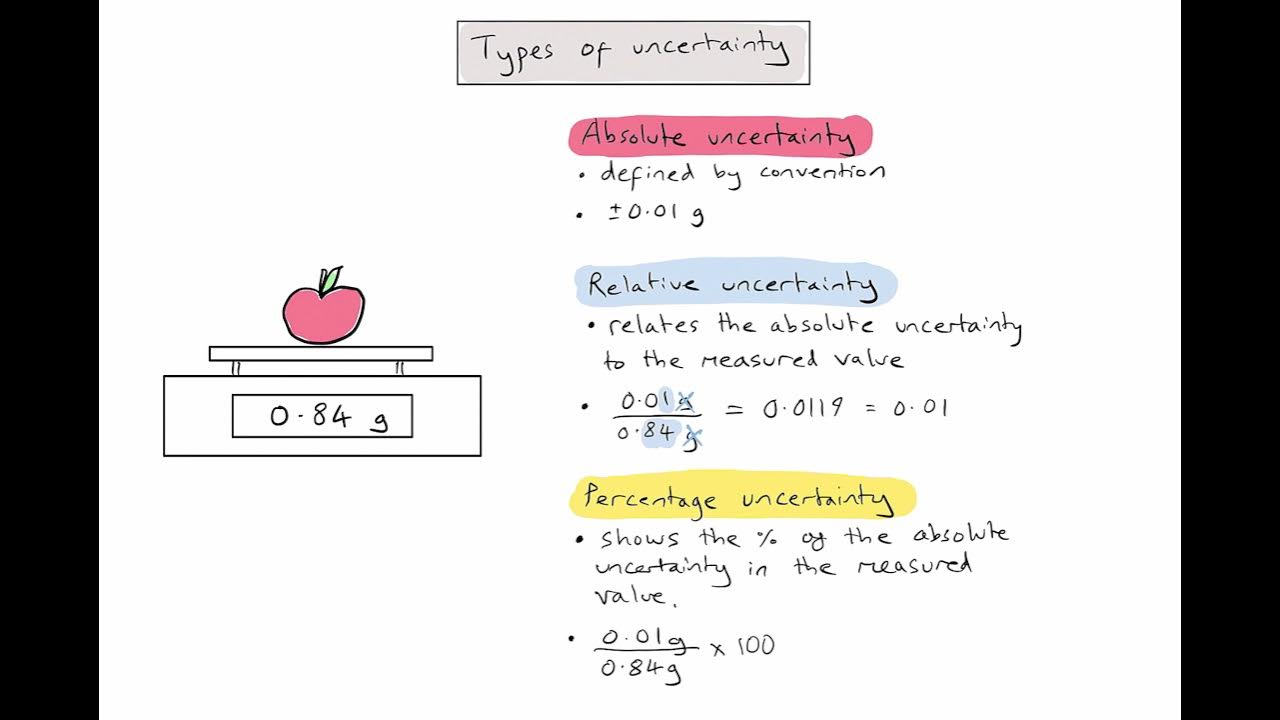 Types of uncertainty
Absolute uncertainty
• defined by convention
• ±0.01 g
Relative uncertainty
• relates the absolute uncertainty
to the measured value
• 0.01g
0.84 g
= 0.0119 = 0.01
0.84 g
Percentage uncertainty
• shows the % of the absolute
uncertainty in the measured
value.
• 0.01g
0.84g
× 100